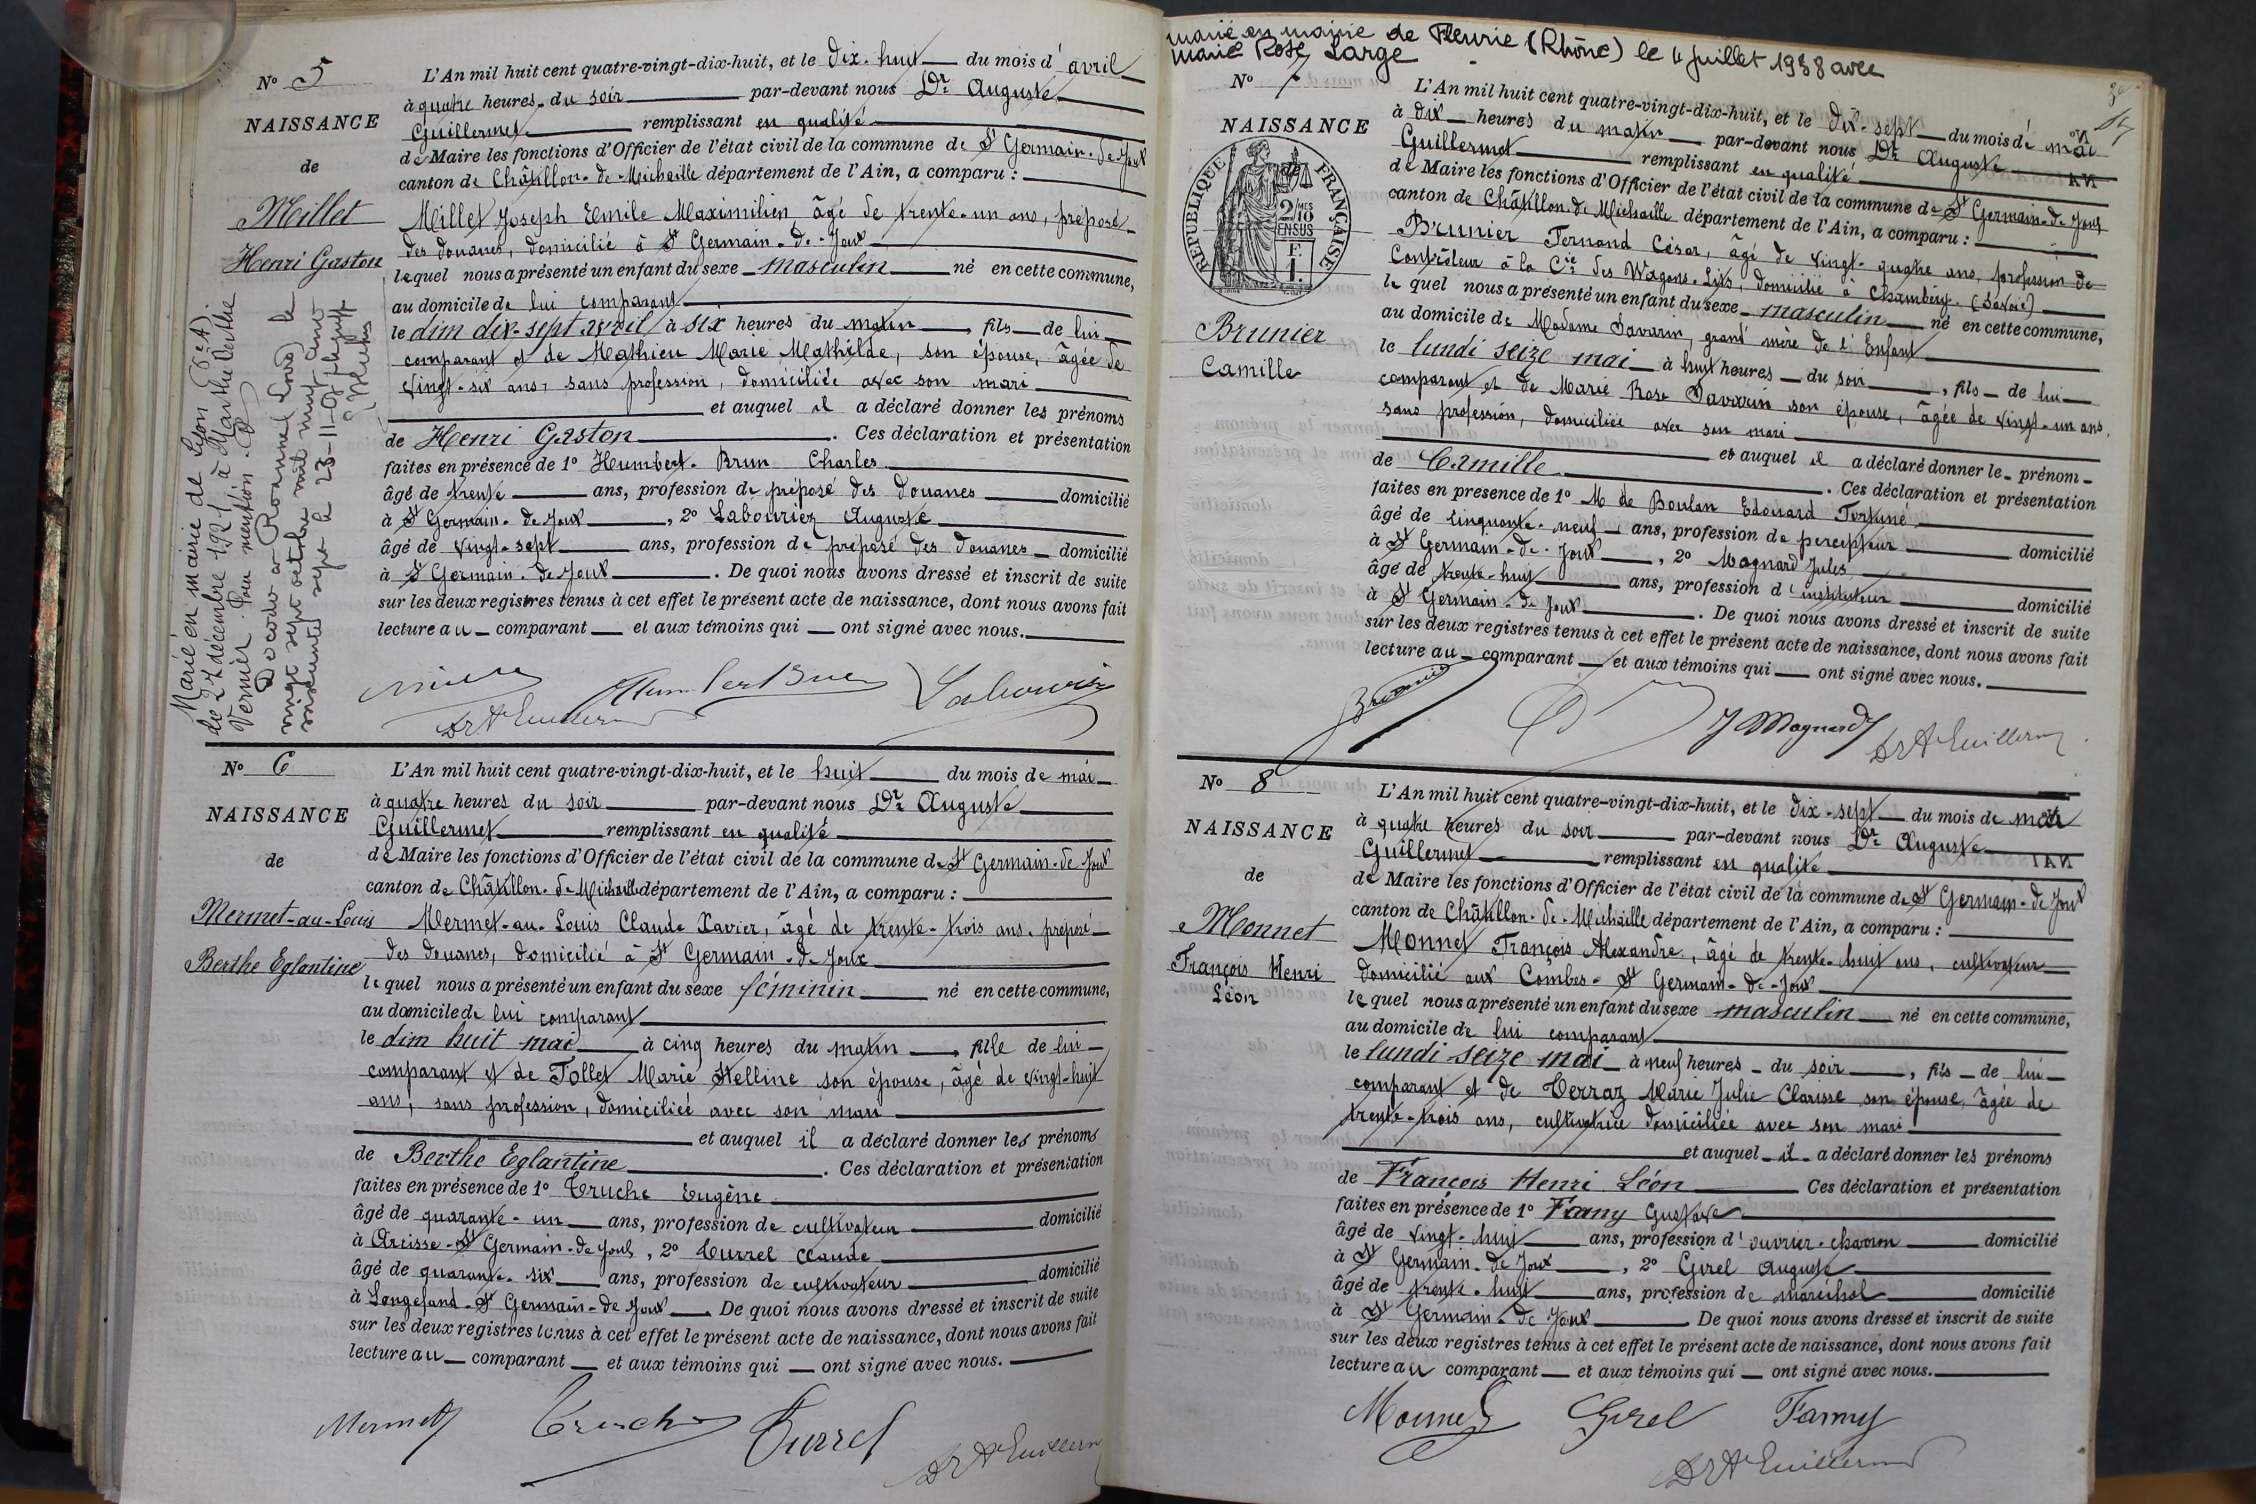 N° 5
NAISSANCE
de
Millet
Henri Gaston
L'An mil huit cent quatre-vingt-dix-huit, et le dix-huit du mois d'avril
à quatre heures du soir par-devant nous Dr Auguste
Guillermet remplissant en qualité
de Maire les fonctions d'Officier de l'état civil de la commune de St Germain-de-Joux
canton de Châtillon-de-Michaille département de l'Ain, a comparu :
Millet Joseph Emile Maximilien, âgé de trente-un ans, préposé
des douanes, domicilié à St Germain-de-Joux
lequel nous a présenté un enfant du sexe masculin né en cette commune,
au domicile de lui comparant
le dim dix-sept avril à six heures du matin, fils de lui
comparant et de Mathieu Marie Mathilde, son épouse, âgée de
vingt-six ans, sans profession, domiciliée avec son mari
et auquel il a déclaré donner les prénoms
de Henri Gaston. Ces déclaration et présentation
faites en présence de 1° Humbert-Brun Charles
âgé de trente ans, profession de préposé des douanes domicilié
à St Germain-de-Joux, 2° Labouriez Auguste
âgé de vingt-sept ans, profession de préposé des douanes domicilié
à St Germain-de-Joux. De quoi nous avons dressé et inscrit de suite
sur les deux registres tenus à cet effet le présent acte de naissance, dont nous avons fait
lecture au comparant et aux témoins qui ont signé avec nous.
Marié en mairie de Lyon (6e A)
le 27 décembre 1921 à Marthe Berthe
Vernier. Pour mention
Décédé à Roanne (Loire) le
vingt sept octobre mil neuf cent
soixante
Humbert Brun
Dr A Guillermet
N° 6
NAISSANCE
de
Mermet-au-Louis
Berthe Eglantine
L'An mil huit cent quatre-vingt-dix-huit, et le huit du mois de mai
à quatre heures du soir par-devant nous Dr Auguste
Guillermet remplissant en qualité
de Maire les fonctions d'Officier de l'état civil de la commune de St Germain-de-Joux
canton de Châtillon-de-Michaille département de l'Ain, a comparu :
Mermet-au-Louis Claude Xavier, âgé de trente-trois ans, préposé
des douanes, domicilié à St Germain-de-Joux
lequel nous a présenté un enfant du sexe féminin né en cette commune,
au domicile de lui comparant
le dim huit mai à cinq heures du matin, fille de lui
comparant et de Tollet Marie Stelline son épouse, âgé de vingt-huit
ans, sans profession, domiciliée avec son mari
et auquel il a déclaré donner les prénoms
de Berthe Eglantine. Ces déclaration et présentation
faites en présence de 1° Truche Eugène
âgé de quarante-un ans, profession de cultivateur domicilié
à Arcisse-St Germain-de-Joux, 2° Curret Claude
âgé de quarante-six ans, profession de cultivateur domicilié
à Longefand-St Germain-de-Joux. De quoi nous avons dressé et inscrit de suite
sur les deux registres tenus à cet effet le présent acte de naissance, dont nous avons fait
lecture au comparant et aux témoins qui ont signé avec nous.
Mermet Truche Curret
Dr A Guillermet
marié en mairie de Fleurie (Rhône) le 4 juillet 1938 avec
Marie Rose Large
N° 7
NAISSANCE
de
RÉPUBLIQUE FRANÇAISE
Brunier
Camille
L'An mil huit cent quatre-vingt-dix-huit, et le dix-sept du mois de mai
à dix heures du matin par-devant nous Dr Auguste
Guillermet remplissant en qualité
de Maire les fonctions d'Officier de l'état civil de la commune de St Germain-de-Joux
canton de Châtillon-de-Michaille département de l'Ain, a comparu :
Brunier Fernand César, âgé de vingt-quatre ans, profession de
Contrôleur à la Cie des Wagons-Lits, domicilié à Chambéry (Savoie)
lequel nous a présenté un enfant du sexe masculin né en cette commune,
au domicile de Madame Savarin, grand mère de l'Enfant
le lundi seize mai à huit heures du soir, fils de lui
comparant et de Marie Rose Savarin son épouse, âgée de vingt-un ans,
sans profession, domiciliée avec son mari
et auquel il a déclaré donner le prénom
de Camille. Ces déclaration et présentation
faites en présence de 1° M de Boulan Edouard Fortuné
âgé de cinquante-neuf ans, profession de percepteur domicilié
à St Germain-de-Joux, 2° Magnard Jules
âgé de trente-huit ans, profession d'instituteur domicilié
à St Germain-de-Joux. De quoi nous avons dressé et inscrit de suite
sur les deux registres tenus à cet effet le présent acte de naissance, dont nous avons fait
lecture au comparant et aux témoins qui ont signé avec nous.
Brunier J Magnard Dr A Guillermet
N° 8
NAISSANCE
de
Monnet
François Henri
Léon
L'An mil huit cent quatre-vingt-dix-huit, et le dix-sept du mois de mai
à quatre heures du soir par-devant nous Dr Auguste
Guillermet remplissant en qualité
de Maire les fonctions d'Officier de l'état civil de la commune de St Germain-de-Joux
canton de Châtillon-de-Michaille département de l'Ain, a comparu :
Monnet François Alexandre, âgé de trente-huit ans, cultivateur
domicilié aux Combes-St Germain-de-Joux
lequel nous a présenté un enfant du sexe masculin né en cette commune,
au domicile de lui comparant
le lundi seize mai à neuf heures du soir, fils de lui
comparant et de Terraz Marie Julie Clarisse son épouse, âgée de
trente-trois ans, cultivatrice domiciliée avec son mari
et auquel il a déclaré donner les prénoms
de François Henri Léon Ces déclaration et présentation
faites en présence de 1° Famy Gustave
âgé de vingt-huit ans, profession d'ouvrier-charron domicilié
à St Germain-de-Joux, 2° Girel Auguste
âgé de trente-huit ans, profession de maréchal domicilié
à St Germain-de-Joux De quoi nous avons dressé et inscrit de suite
sur les deux registres tenus à cet effet le présent acte de naissance, dont nous avons fait
lecture au comparant et aux témoins qui ont signé avec nous.
Monnet Girel Famy
Dr A Guillermet